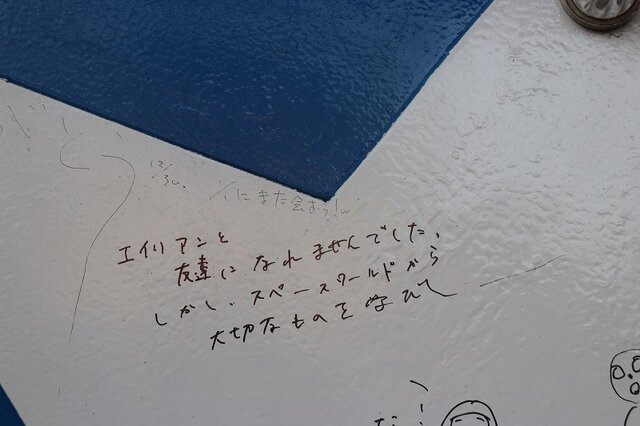 12/30.
1/1にまた会おう!w
エイリアンと
友達になれませんでした。
しかし、スペースワールドから
大切なものを学び